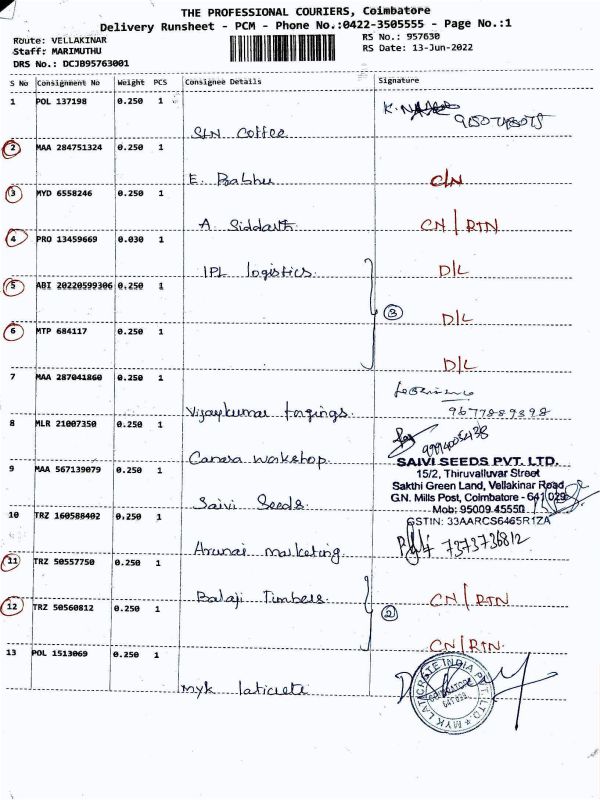 THE PROFESSIONAL COURIERS, Coimbatore
Delivery Runsheet - PCM - Phone No.:0422-3505555 - Page No.:1
Route: VELLAKINAR RS No.: 957630
Staff: MARIMUTHU RS Date: 13-Jun-2022
DRS No.: DCJB95763001
S No Consignment No Weight PCS Consignee Details Signature
1 POL 137198 0.250 1
SLN Coffee K.
2 MAA 284751324 0.250 1
E. Prabhu C/N
3 MYD 6558246 0.250 1
A. Siddarth CN/RTN
4 PRO 13459669 0.030 1
IPL logistics. D/L
5 ABI 20220599306 0.250 1
3 D/L
6 MTP 684117 0.250 1
D/L
7 MAA 287041860 0.250 1
Vijaykumar forgings. 9677889398
8 MLR 21007350 0.250 1
Canara workshop. 9994005438
9 MAA 567139079 0.250 1
Saivi Seeds.
SAIVI SEEDS PVT. LTD.
15/2, Thiruvalluvar Street
Sakthi Green Land, Vellakinar Road,
G.N. Mills Post, Coimbatore - 641 029
Mob: 95009 45550
GSTIN: 33AARCS6465R1ZA
10 TRZ 160588402 0.250 1
Arunai marketing. 7373736812
11 TRZ 50557750 0.250 1
Balaji Timbers. CN/RTN
12 TRZ 50560812 0.250 1
2 CN/RTN.
13 POL 1513069 0.250 1
myk laticrete
MYK LATICRETE INDIA PVT. LTD.
COIMBATORE
641 029